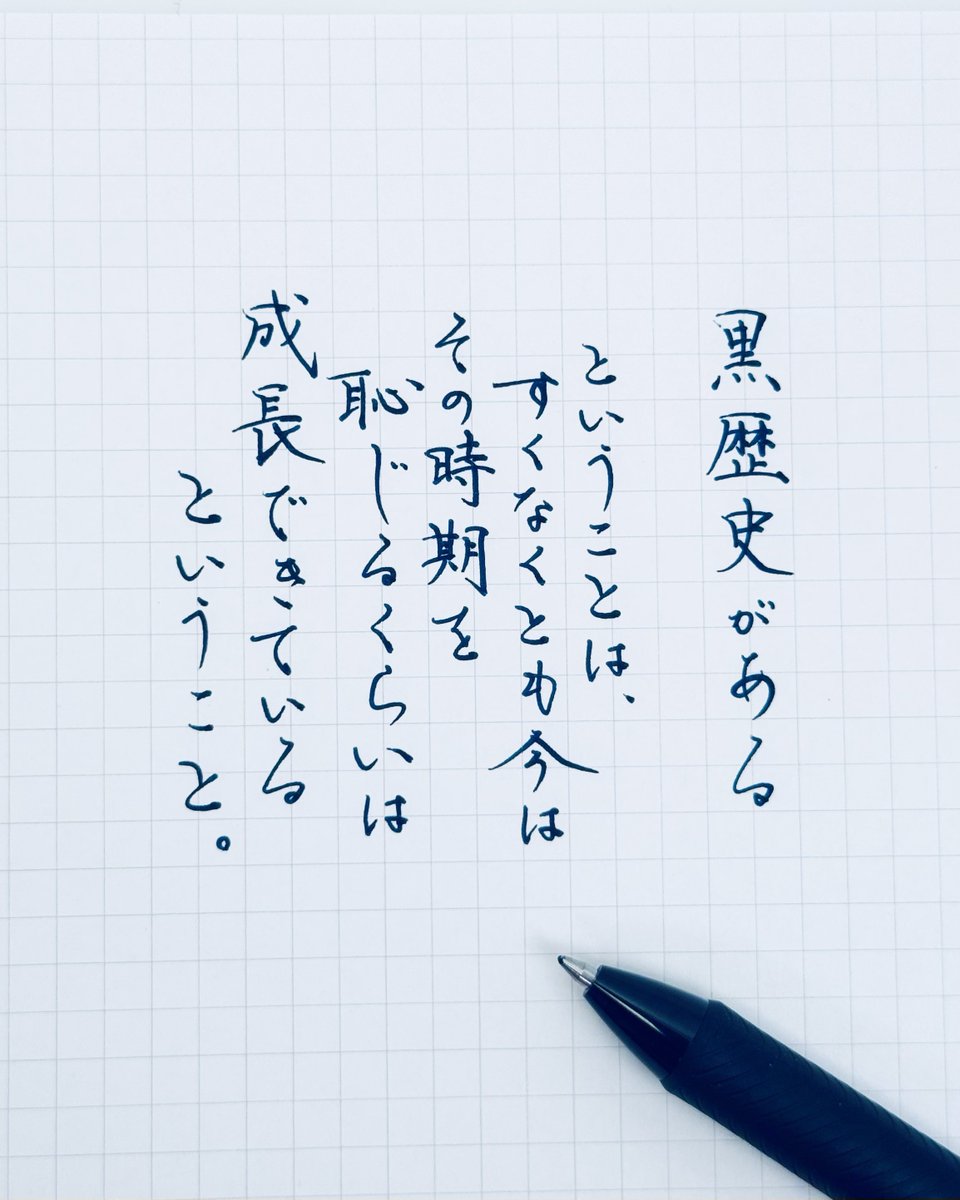 黒歴史がある
ということは、
すくなくとも今は
その時期を
恥じるくらいは
成長できている
ということ。